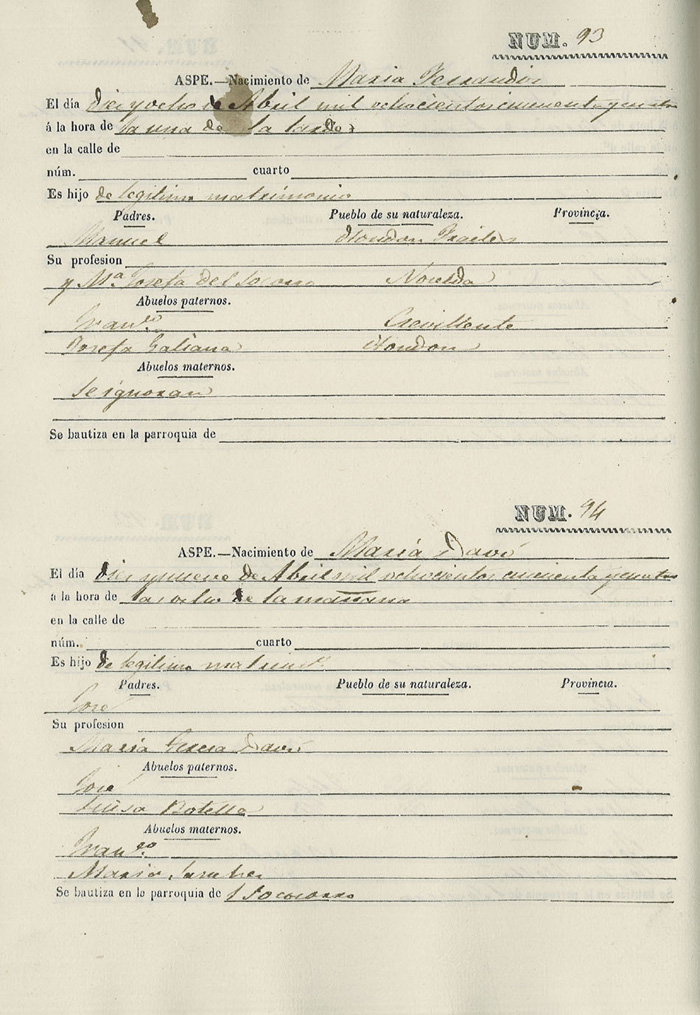 NUM. 93
ASPE.—Nacimiento de Maria Fernandez
El día diez y ocho de Abril mil ochocientos cincuenta y cuatro
á la hora de la una de la tarde
en la calle de
núm. cuarto
Es hijo de legitimo matrimonio
Padres. Pueblo de su naturaleza. Provincia.
Manuel Hondon Frailes
Su profesion
y Mª Josefa del Socorro Novelda
Abuelos paternos.
Franco Crevillente
Josefa Galiana Hondon
Abuelos maternos.
Se ignoran
Se bautiza en la parroquia de
NUM. 94
ASPE.—Nacimiento de Maria Davó
El día diez y nueve de Abril mil ochocientos cincuenta y cuatro
á la hora de las ocho de la mañana
en la calle de
núm. cuarto
Es hijo de legitimo
Padres. Pueblo de su naturaleza. Provincia.
José
Su profesion
Maria Davó
Abuelos paternos.
José
Luisa Botella
Abuelos maternos.
Franco
Maria Sanchez
Se bautiza en la parroquia de Socorro